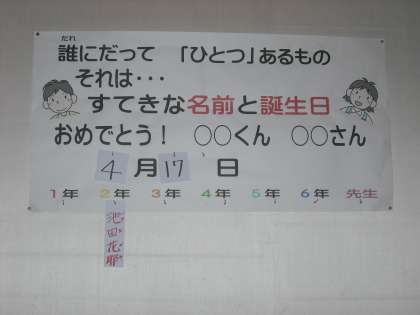 だれ
誰にだって 「ひとつ」あるもの
それは・・・
すてきな名前と誕生日
おめでとう！ ○○くん ○○さん
4月17日
1年 2年 3年 4年 5年 6年 先生
池田花耶